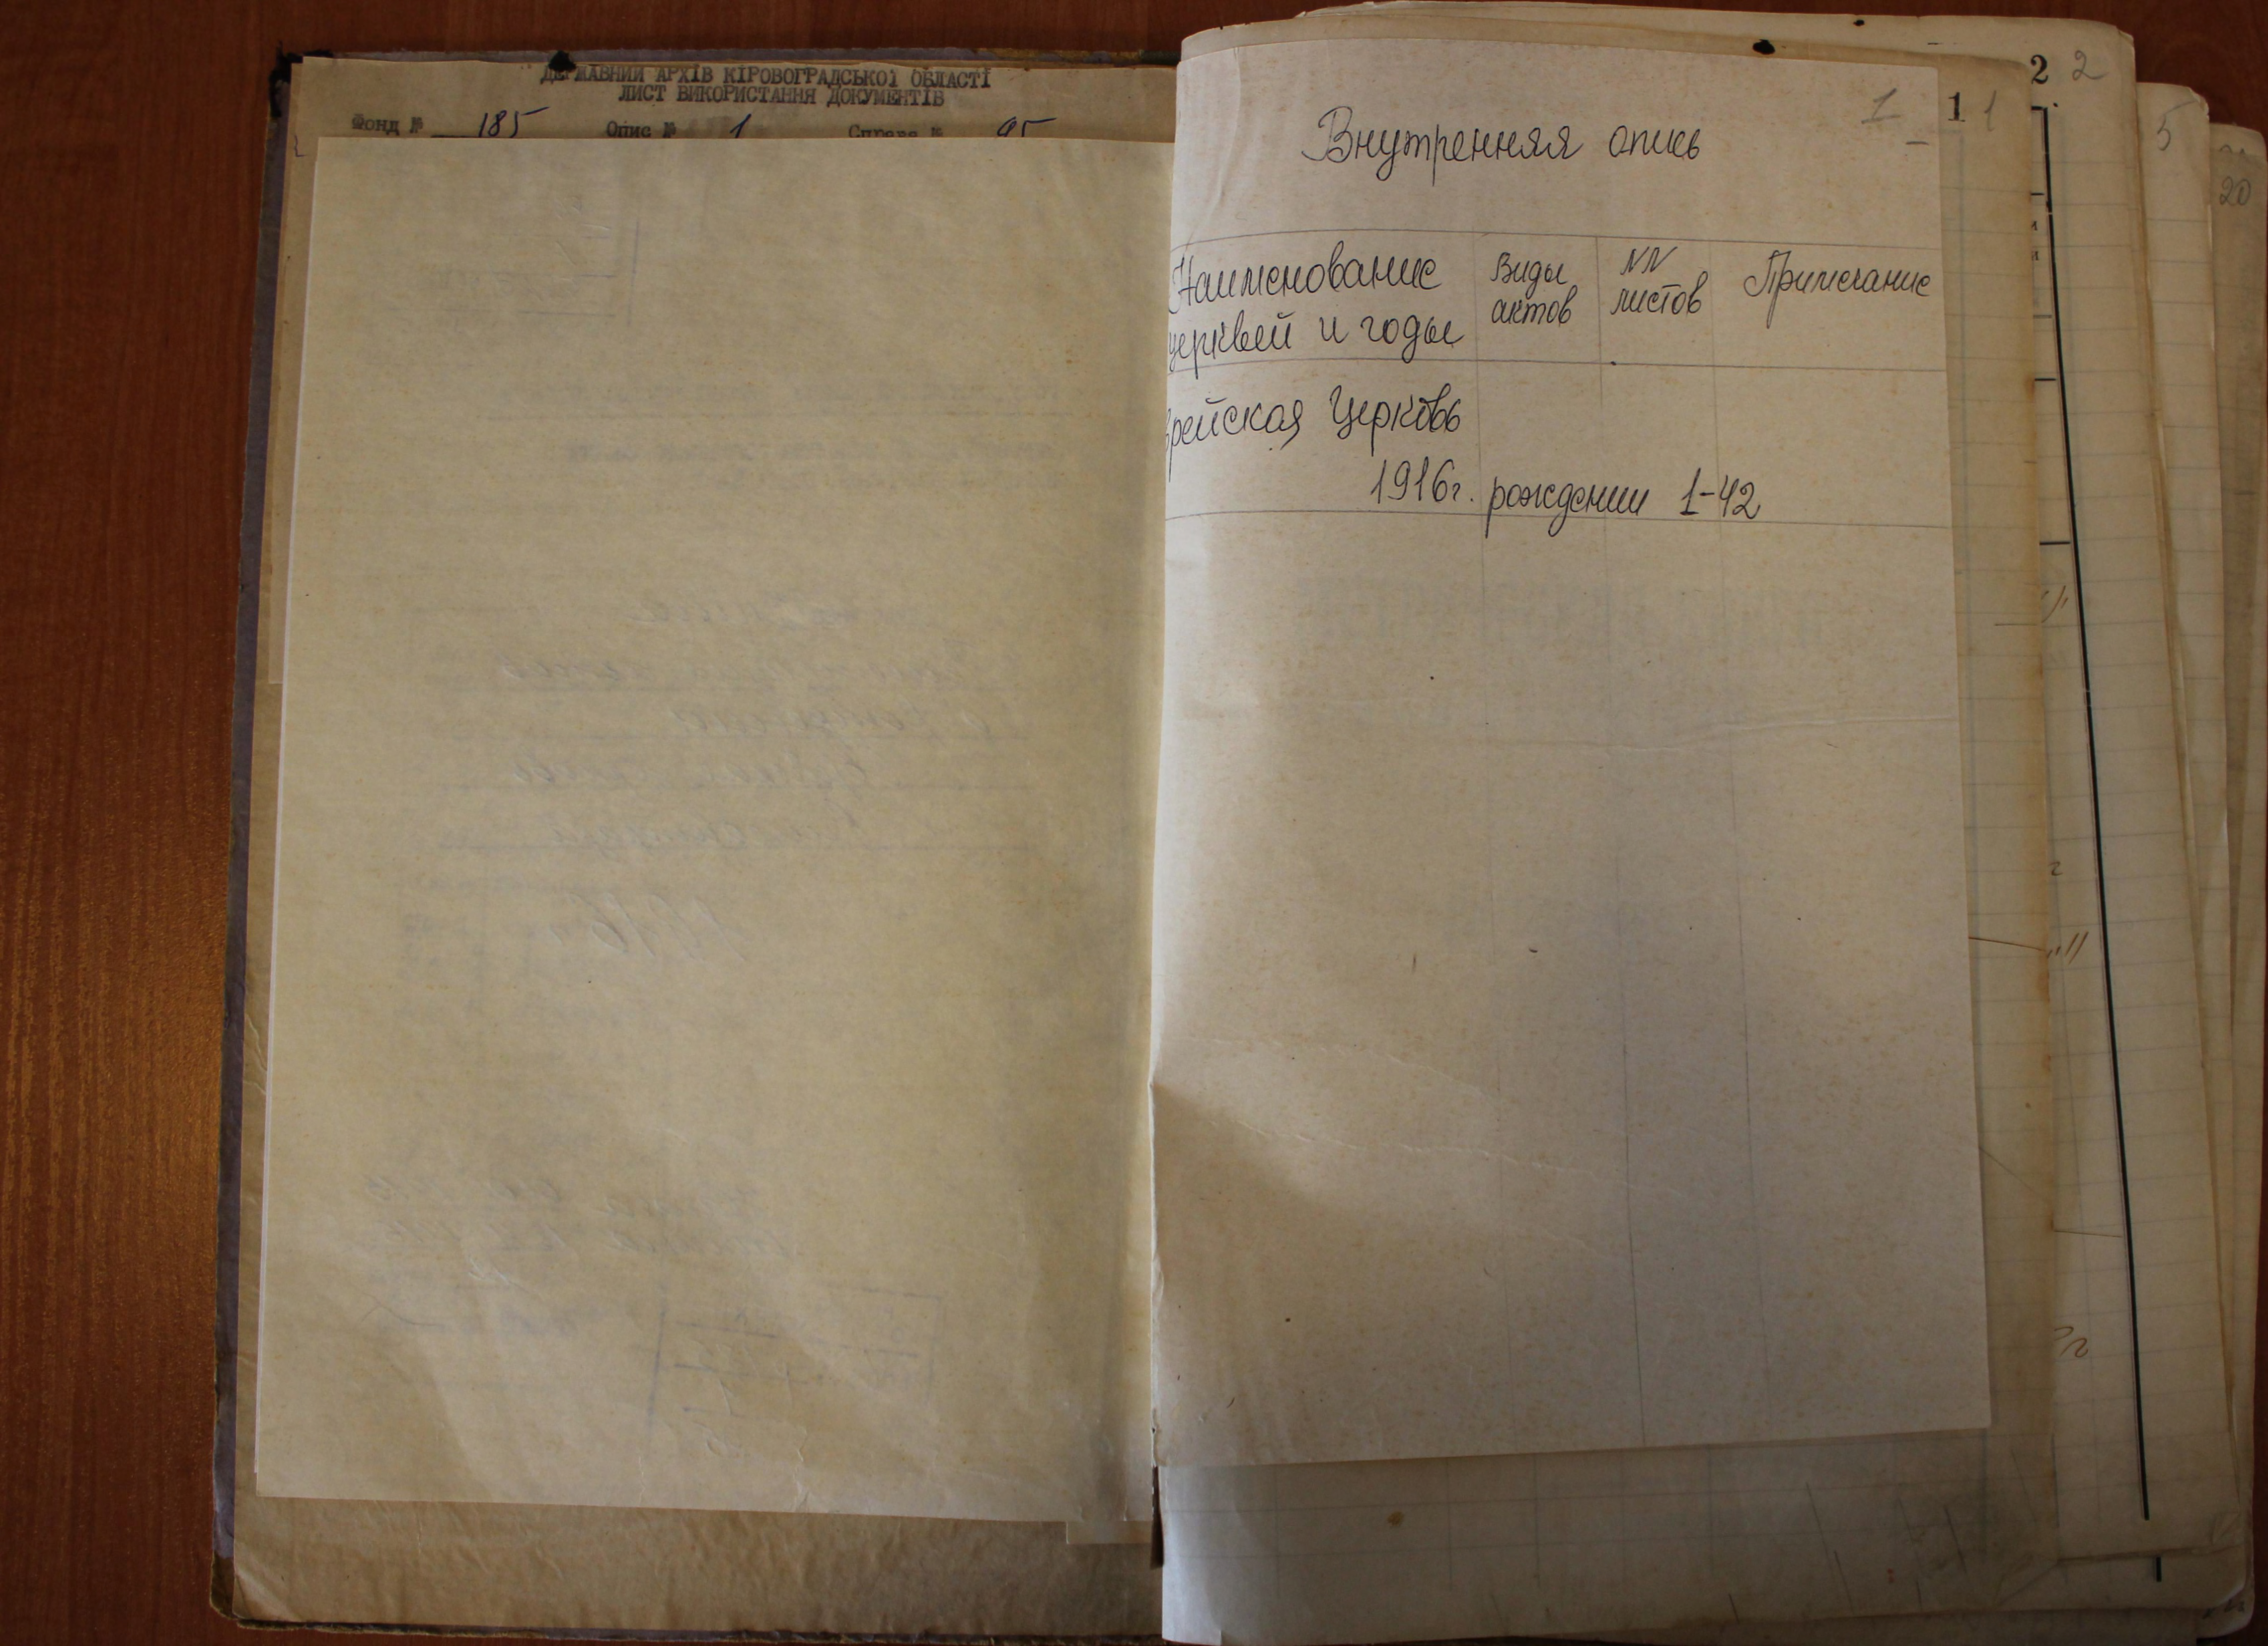 ДЕРЖАВНИЙ АРХІВ КІРОВОГРАДСЬКОЇ ОБЛАСТІ
ЛИСТ ВИКОРИСТАННЯ ДОКУМЕНТІВ
Фонд № 185 Опис № 1 Справа № 95
Внутренняя опись
1
1 1
2 2
5
20
Наименование церквей и годы
Виды актов
NN листов
Примечание
врейская Церковь
1916г. рождении 1-42